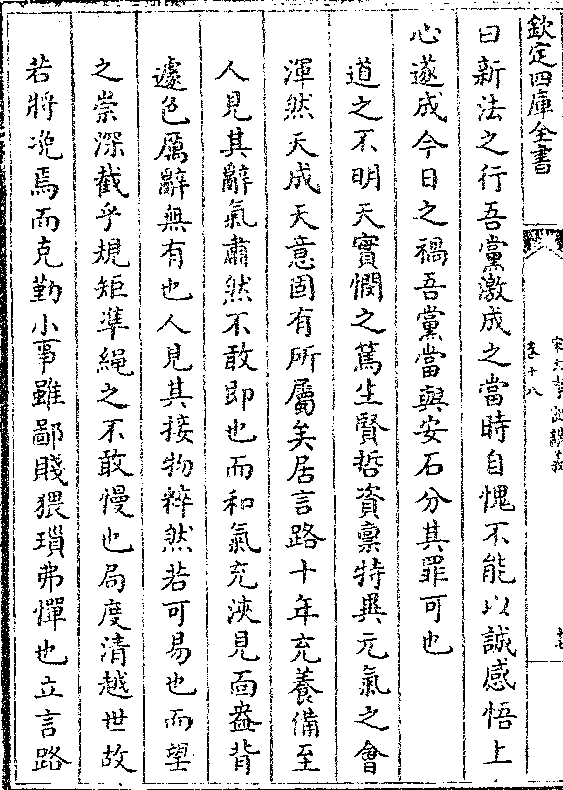 欽定四庫全書
宋大事記講義
卷十八
曰新法之行吾黨激成之當時自愧不能以誠感悟上
心遂成今日之禍吾黨當與安石分其罪可也
道之不明天實憫之篤生賢哲資禀特異元氣之會
渾然天成天意固有所屬矣居言路十年充養備至
人見其辭氣肅然不敢即也而和氣充浹見面盎背
遽色厲辭無有也人見其接物粹然若可易也而望
之崇深截乎規矩準繩之不敢慢也局度清越世故
若將浼焉而克勤小事雖鄙賤猥瑣弗憚也立言路